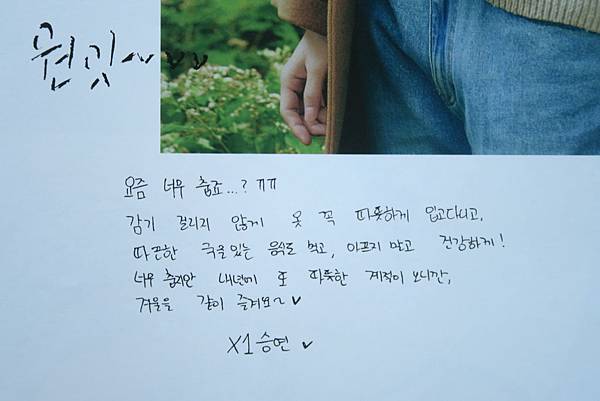 원잇~ ✓✓
요즘 너무 춥죠...? ㅠㅠ
감기 걸리지 않게 옷 꼭 따뜻하게 입고다니고,
따끈한 국물있는 음식도 먹고, 아프지 말고 건강하게!
너무 춥지만 내년에 또 따뜻한 계절이 오니깐,
겨울을 같이 즐겨요~ ✓
X1 승연 ✓